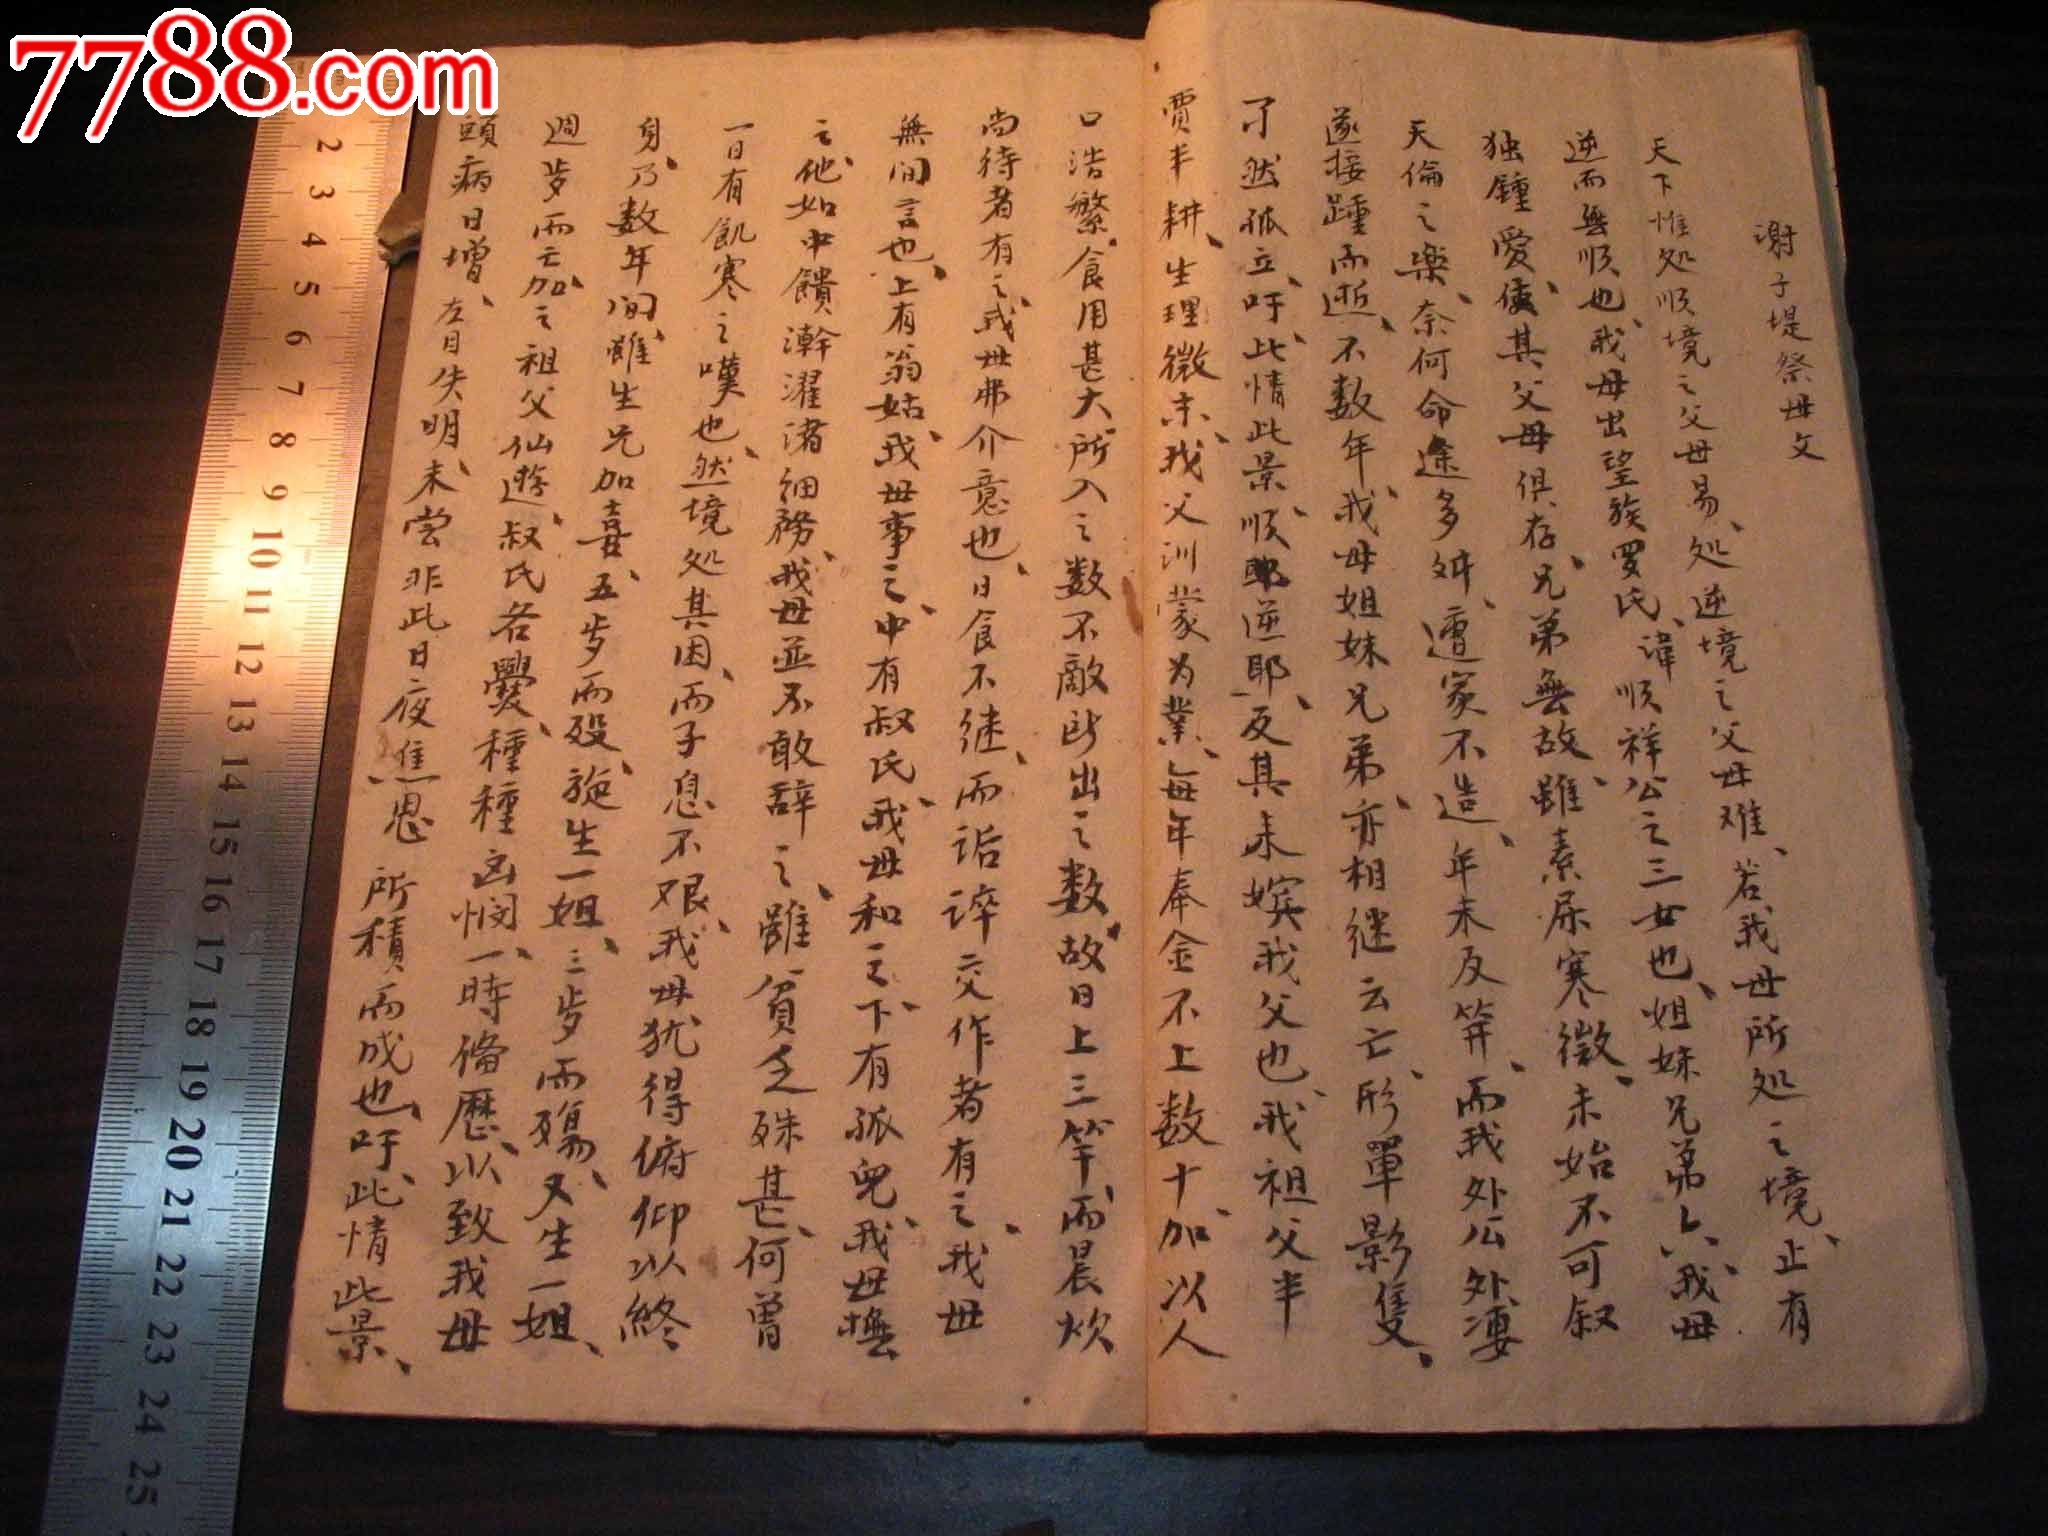 7788.com
謝子堤祭母文
天下惟处順境之父母易、处逆境之父母难、若我母所处之境、止有
逆而無順也、我母出望族罗氏、諱順祥公之三女也、姐妹兄弟六、我母
独鍾愛、使其父母俱存、兄弟無故、雖素屌寒微、未始不可叙
天倫之楽、奈何命途多舛、遭家不造、年未及笄、而我外公外婆
遂接踵而逝、不数年、我母姐妹兄弟、亦相継云亡、形單影隻、
孑然孤立、吁、此情此景、順耶逆耶、反其来嬪我父也、我祖父半
賈半耕、生理微末、我父训蒙为業、每年奉金不上数十、加以人
口浩繁、食用甚大、所入之数不敵所出之数、故日上三竿、而晨炊
尚待者有之、我母弗介意也、日食不继、而诟谇交作者有之、我母
無间言也、上有翁姑、我母事之、中有叔氏、我母和之、下有孤兒、我母撫
之、他如中饋澣濯诸细務、我母並不敢辞之、雖貧乏殊甚、何曾
一日有飢寒之嘆也、然境处其困、而子息不艰、我母犹得俯仰以終
身、乃数年间、雖生兄加喜、五岁而殁、施生一姐、三岁而殤、又生一姐、
週岁而亡、加之祖父仙遊、叔氏各爨、種種凶悯、一時俻歷、以致我母
頭病日增、左目失明、未尝非此日夜焦思所積而成也、吁、此情此景、
2
3
4
5
6
7
8
9
10
11
12
13
14
15
16
17
18
19
20
21
22
23
24
25